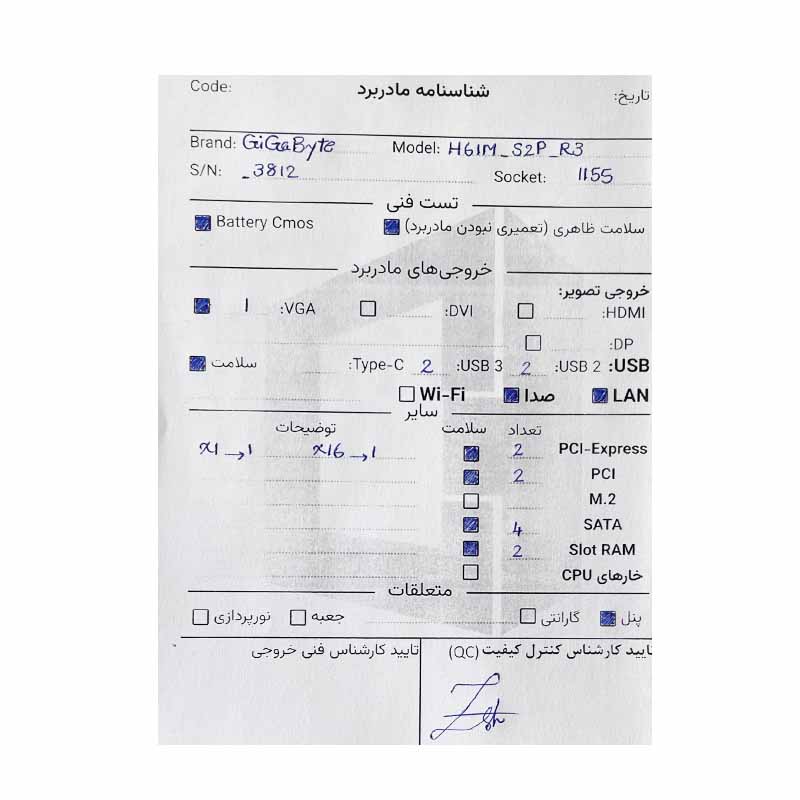 شناسنامه مادربرد
تاریخ: Code:
Brand: GiGaByte Model: H61M_S2P_R3
S/N: _3812 Socket: 1155
تست فنی
سلامت ظاهری (تعمیری نبودن مادربرد) Battery Cmos
خروجی‌های مادربرد
خروجی تصویر:
HDMI: DVI: VGA: 1
DP:
USB: USB 2: 2 USB 3: 2 Type-C: سلامت
LAN صدا Wi-Fi
سایر
تعداد سلامت توضیحات
PCI-Express 2 x16→1 x1→1
PCI 2
M.2
SATA 4
Slot RAM 2
خارهای CPU
متعلقات
پنل گارانتی جعبه نورپردازی
تایید کارشناس کنترل کیفیت (QC) تایید کارشناس فنی خروجی